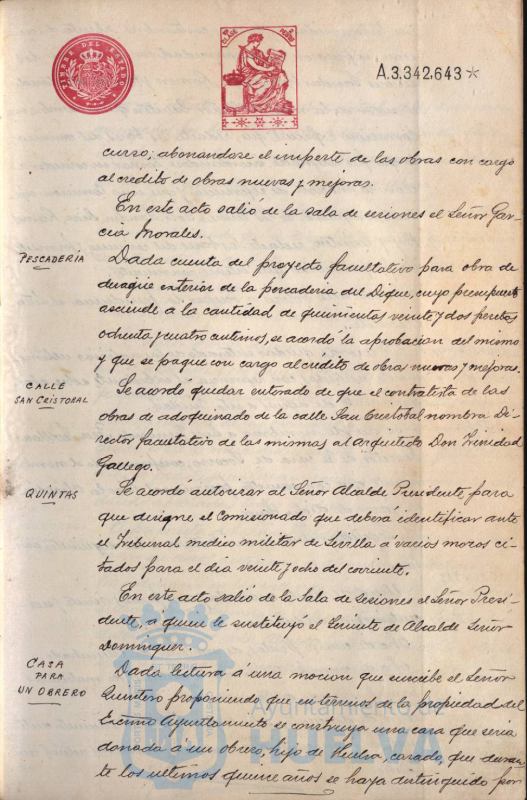 TIMBRE DEL ESTADO
A.3.342.643
curso; abonandose el importe de las obras con cargo
al crédito de obras nuevas y mejoras.
En este acto salió de la sala de sesiones el Señor Gar-
cia Morales.
PESCADERÍA
Dada cuenta del proyecto facultativo para obra de
desagüe exterior de la pescaderia del Dique, cuyo presupuesto
asciende a la cantidad de quinientas veinte y dos pesetas
ochenta y cuatro centimos, se acordó la aprobacion del mismo
y que se pague con cargo al crédito de obras nuevas y mejoras.
CALLE
SAN CRISTOBAL
Se acordó quedar enterado de que el contratista de las
obras de adoquinado de la calle San Cristobal nombra Di-
rector facultativo de las mismas al arquitecto Don Trinidad
Gallego.
QUINTAS
Se acordó autorizar al Señor Alcalde Presidente para
que designe el Comisionado que deberá identificar ante
el Tribunal medico militar de Sevilla á varios mozos ci-
tados para el dia veinte y ocho del corriente.
En este acto salió de la Sala de sesiones el Señor Presi-
dente, á quien le sustituyó el Teniente de Alcalde Señor
Dominguez.
CASA
PARA
UN OBRERO
Dada lectura á una mocion que suscribe el Señor
Quintero proponiendo que en terrenos de la propiedad del
Excmo Ayuntamiento se construya una casa que seria
donada á un obrero, hijo de Huelva, casado, que duran-
te los ultimos quince años se haya distinguido por
Ayuntamiento de
HUELVA